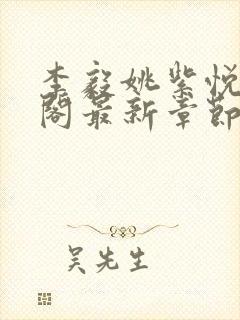 李毅姚紫悦
阁最新章節
吴先生